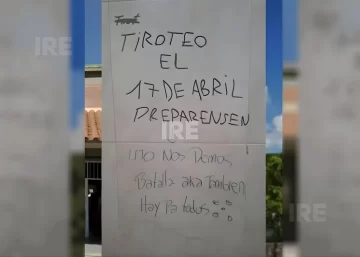 TiROTEO
EL
17 DE ABRIL
PREPARENSEN
UNO NOS Damos
Batalla aka tambien
Hay Pa todos
IRE
IRE
IRE